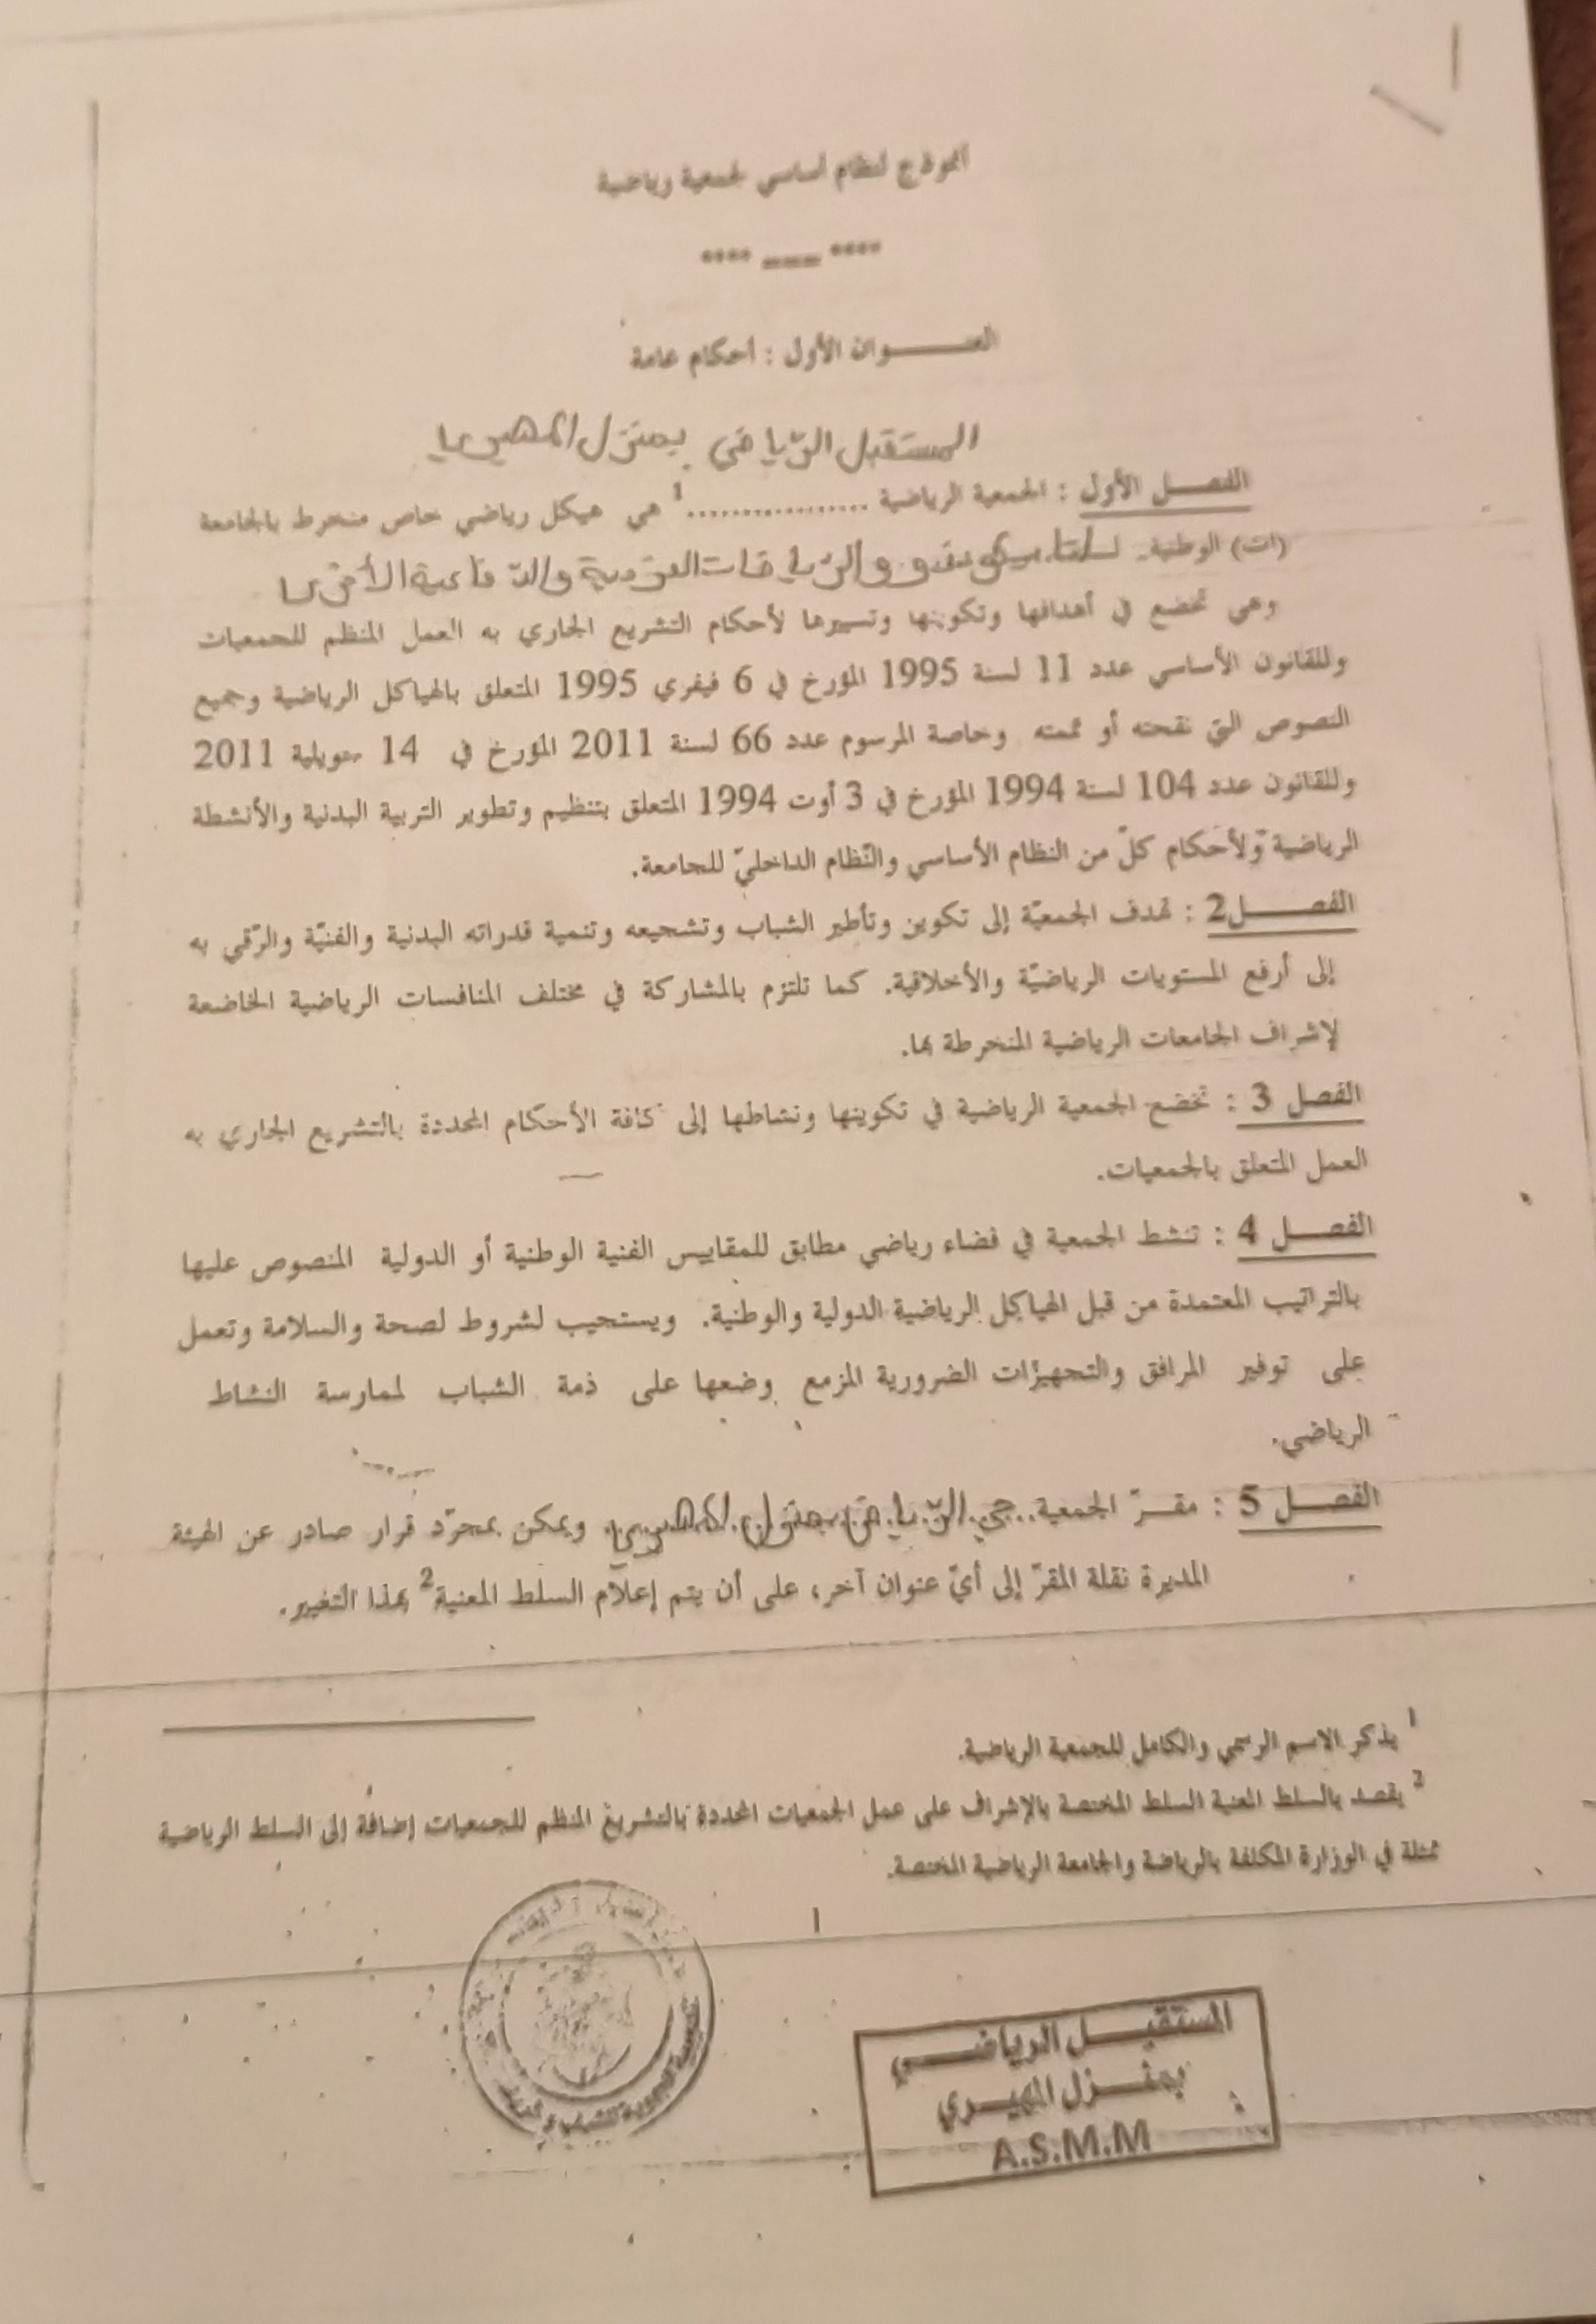 أنموذج لنظام أساسي لجمعية رياضية
**** ــــ ****
العنـــــوان الأول : أحكام عامة
المستقبل الرياضي بمنزل المهيري
الفصــل الأول : الجمعية الرياضية ..................1 هي هيكل رياضي خاص منخرط بالجامعة
(ات) الوطنية والرياضات الفردية والدفاعية الأخرى
وهي تخضع في أهدافها وتكوينها وتسييرها لأحكام التشريع الجاري به العمل المنظم للجمعيات
وللقانون الأساسي عدد 11 لسنة 1995 المؤرخ في 6 فيفري 1995 المتعلق بالهياكل الرياضية وجميع
النصوص التي نقحته أو تممته وخاصة المرسوم عدد 66 لسنة 2011 المؤرخ في 14 جويلية 2011
وللقانون عدد 104 لسنة 1994 المؤرخ في 3 أوت 1994 المتعلق بتنظيم وتطوير التربية البدنية والأنشطة
الرياضية ولأحكام كلّ من النظام الأساسي والنّظام الداخليّ للجامعة.
الفصــــل2 : تهدف الجمعيّة إلى تكوين وتأطير الشباب وتشجيعه وتنمية قدراته البدنية والفنيّة والرّقي به
إلى أرفع المستويات الرياضيّة والأخلاقية. كما تلتزم بالمشاركة في مختلف المنافسات الرياضية الخاضعة
لإشراف الجامعات الرياضية المنخرطة بها.
الفصل 3 : تخضع الجمعية الرياضية في تكوينها ونشاطها إلى كافة الأحكام المحددة بالتشريع الجاري به
العمل المتعلق بالجمعيات.
الفصــل 4 : تنشط الجمعية في فضاء رياضي مطابق للمقاييس الفنية الوطنية أو الدولية المنصوص عليها
بالتراتيب المعتمدة من قبل الهياكل الرياضية الدولية والوطنية. ويستجيب لشروط لصحة والسلامة وتعمل
على توفير المرافق والتجهيزات الضرورية المزمع وضعها على ذمة الشباب لممارسة النشاط
الرياضي.
الفصــل 5 : مقــرّ الجمعية..حي الرياض بمنزل المهيري ويمكن بمجرّد قرار صادر عن الهيئة
المديرة نقلة المقرّ إلى أيّ عنوان آخر، على أن يتم إعلام السلط المعنية2 بهذا التغيير.
1 يذكر الاسم الرسمي والكامل للجمعية الرياضية.
2 يقصد بالسلط المعنية السلط المختصة بالإشراف على عمل الجمعيات المحددة بالتشريع المنظم للجمعيات إضافة إلى السلط الرياضية
ممثلة في الوزارة المكلفة بالرياضة والجامعة الرياضية المختصة.
1
المستقبــل الرياضــي
بمنــزل المهيــري
A.S.M.M